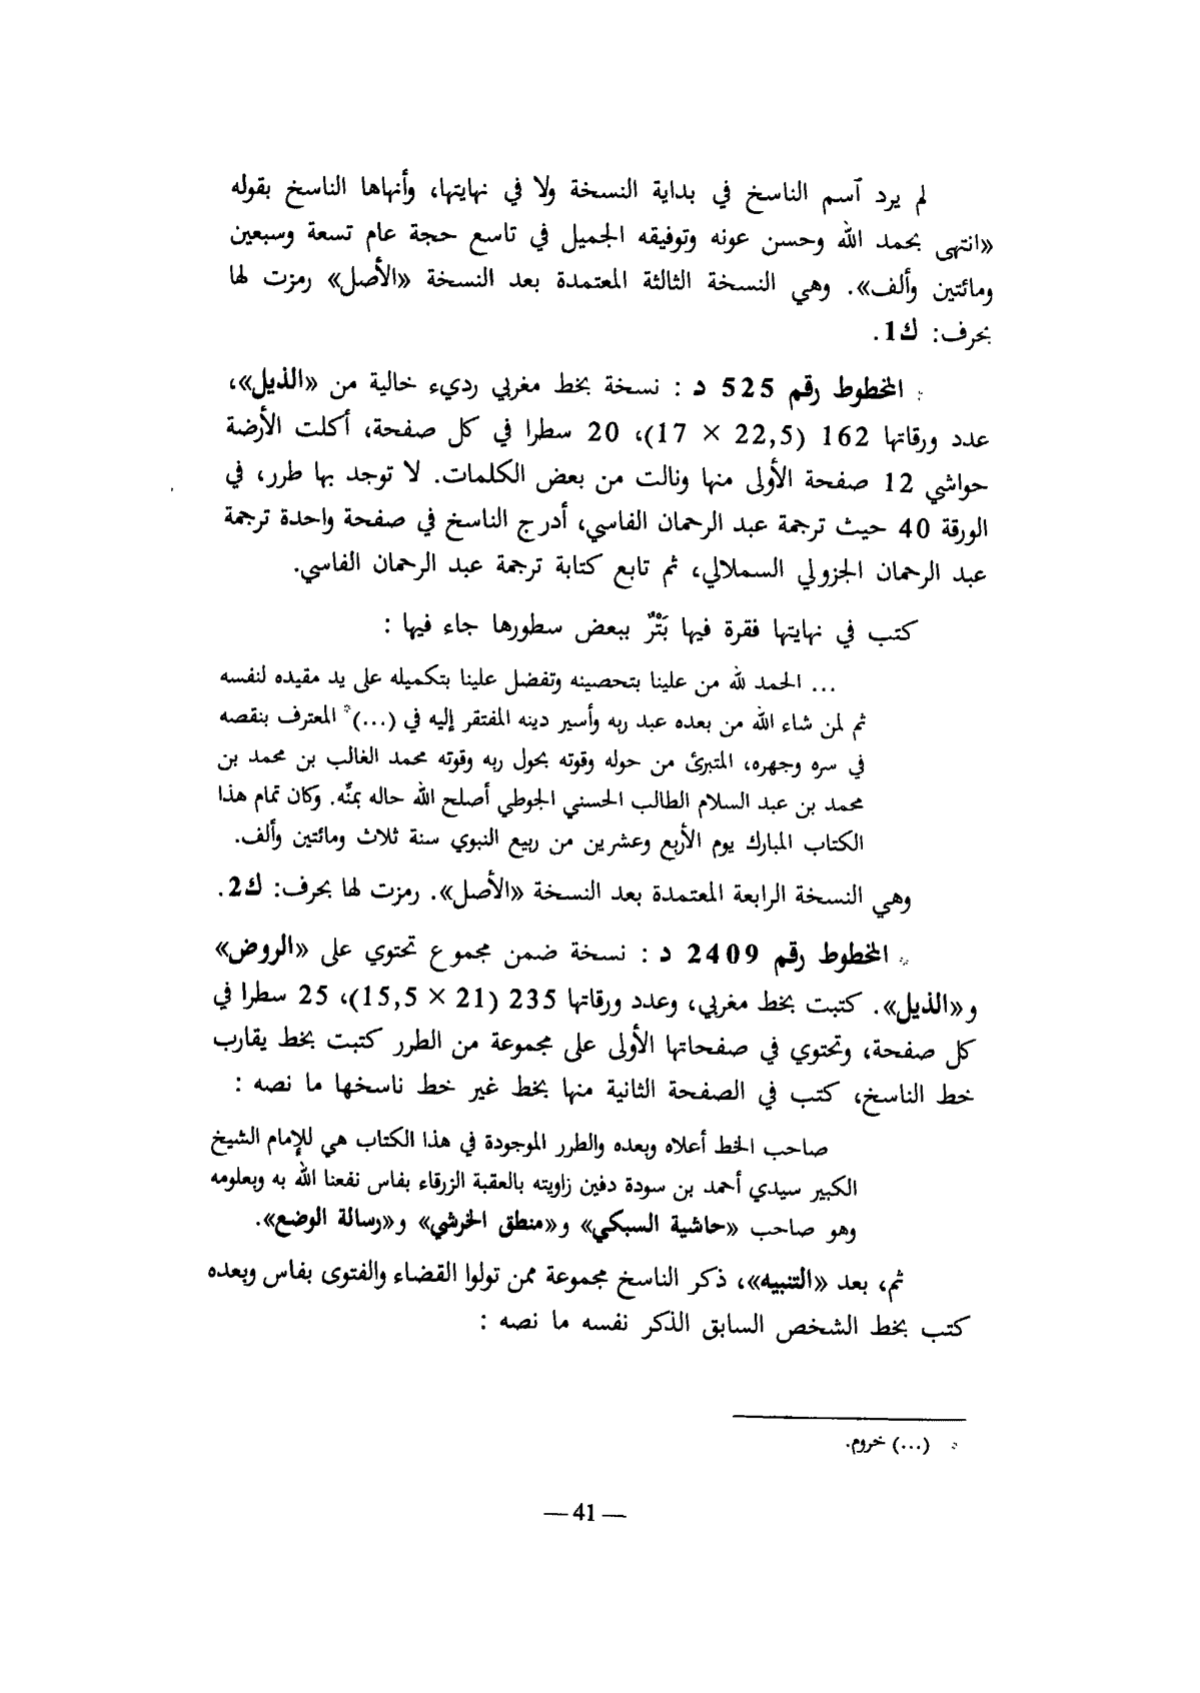 لم يرد آسم الناسخ في بداية النسخة ولا في نهايتها، وأنهاها الناسخ بقوله
«انتهى بحمد الله وحسن عونه وتوفيقه الجميل في تاسع حجة عام تسعة وسبعين
ومائتين وألف». وهي النسخة الثالثة المعتمدة بعد النسخة «الأصل» رمزت لها
بحرف: ك1.
* المخطوط رقم 525 د : نسخة بخط مغربي رديء خالية من «الذيل»،
عدد ورقاتها 162 (22,5 × 17)، 20 سطرا في كل صفحة، أكلت الأرضة
حواشي 12 صفحة الأولى منها ونالت من بعض الكلمات. لا توجد بها طرر، في
الورقة 40 حيث ترجمة عبد الرحمان الفاسي، أدرج الناسخ في صفحة واحدة ترجمة
عبد الرحمان الجزولي السملالي، ثم تابع كتابة ترجمة عبد الرحمان الفاسي.
كتب في نهايتها فقرة فيها بَتْرٌ ببعض سطورها جاء فيها :
... الحمد لله من علينا بتحصينه وتفضل علينا بتكميله على يد مقيده لنفسه
ثم لمن شاء الله من بعده عبد ربه وأسير دينه المفتقر إليه في (...)* المعترف بنقصه
في سره وجهره، المتبرئ من حوله وقوته بحول ربه وقوته محمد الغالب بن محمد بن
محمد بن عبد السلام الطالب الحسني الجوطي أصلح الله حاله بمنّه. وكان تمام هذا
الكتاب المبارك يوم الأربع وعشرين من ربيع النبوي سنة ثلاث ومائتين وألف.
وهي النسخة الرابعة المعتمدة بعد النسخة «الأصل». رمزت لها بحرف: ك2.
* المخطوط رقم 2409 د : نسخة ضمن مجموع تحتوي على «الروض»
و«الذيل». كتبت بخط مغربي، وعدد ورقاتها 235 (21 × 15,5)، 25 سطرا في
كل صفحة، وتحتوي في صفحاتها الأولى على مجموعة من الطرر كتبت بخط يقارب
خط الناسخ، كتب في الصفحة الثانية منها بخط غير خط ناسخها ما نصه :
صاحب الخط أعلاه وبعده والطرر الموجودة في هذا الكتاب هي للإمام الشيخ
الكبير سيدي أحمد بن سودة دفين زاويته بالعقبة الزرقاء بفاس نفعنا الله به وبعلومه
وهو صاحب «حاشية السبكي» و«منطق الخرشي» و«رسالة الوضع».
ثم، بعد «التنبيه»، ذكر الناسخ مجموعة ممن تولوا القضاء والفتوى بفاس وبعده
كتب بخط الشخص السابق الذكر نفسه ما نصه :
* (...) خروم.
— 41 —